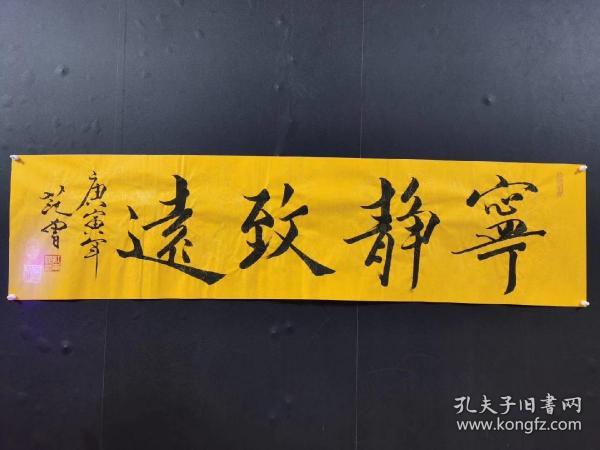 寧靜致遠
庚寅年
范曾
孔夫子旧書网
www.kongfz.com